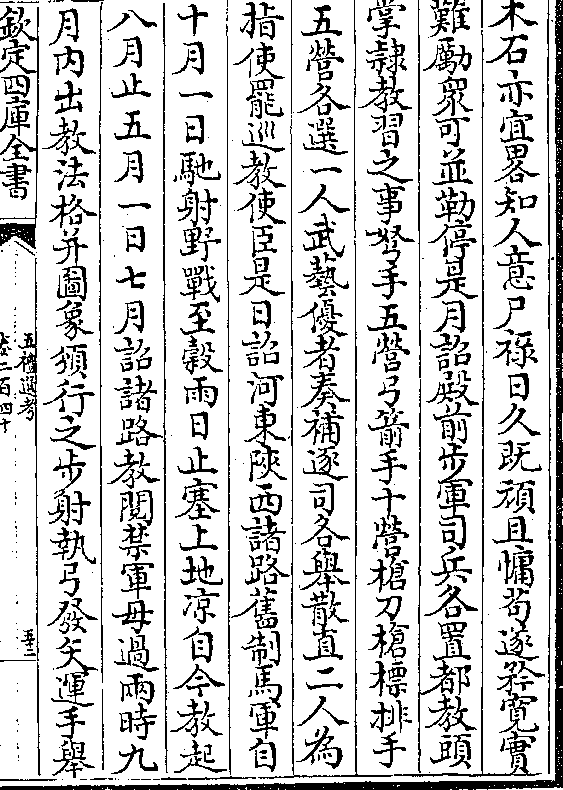 木石亦宜畧知人意尸禄日久既頑且慵苟遂矜寛實
難勵衆可並勒停是月詔殿前步軍司兵各置都教頭
掌隷教習之事弩手五營弓箭手十營槍刀槍標排手
五營各選一人武藝優者奏補逐司各舉散直二人為
指使罷巡教使臣是日詔河東陜西諸路舊制馬軍自
十月一日馳射野戰至榖雨日止塞上地凉自今教起
八月止五月一日七月詔諸路教閲禁軍毋過兩時九
月内出教法格并圖象頒行之步射執弓發矢運手舉
欽定四庫全書
五禮通考
卷二百四十
五三